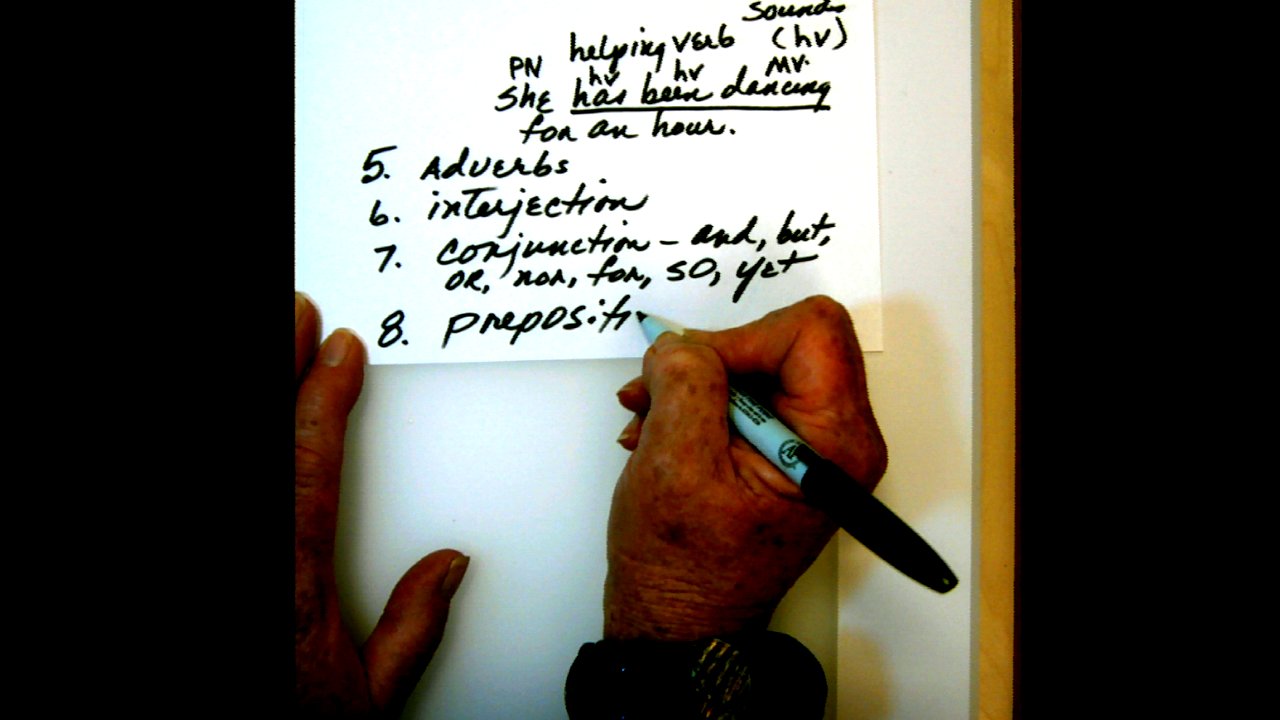 sounds
helping verb (hv)
PN hv hv MV.
She has been dancing
for an hour.
5. Adverbs
6. interjection
7. conjunction – and, but,
or, nor, for, so, yet
8. prepositi